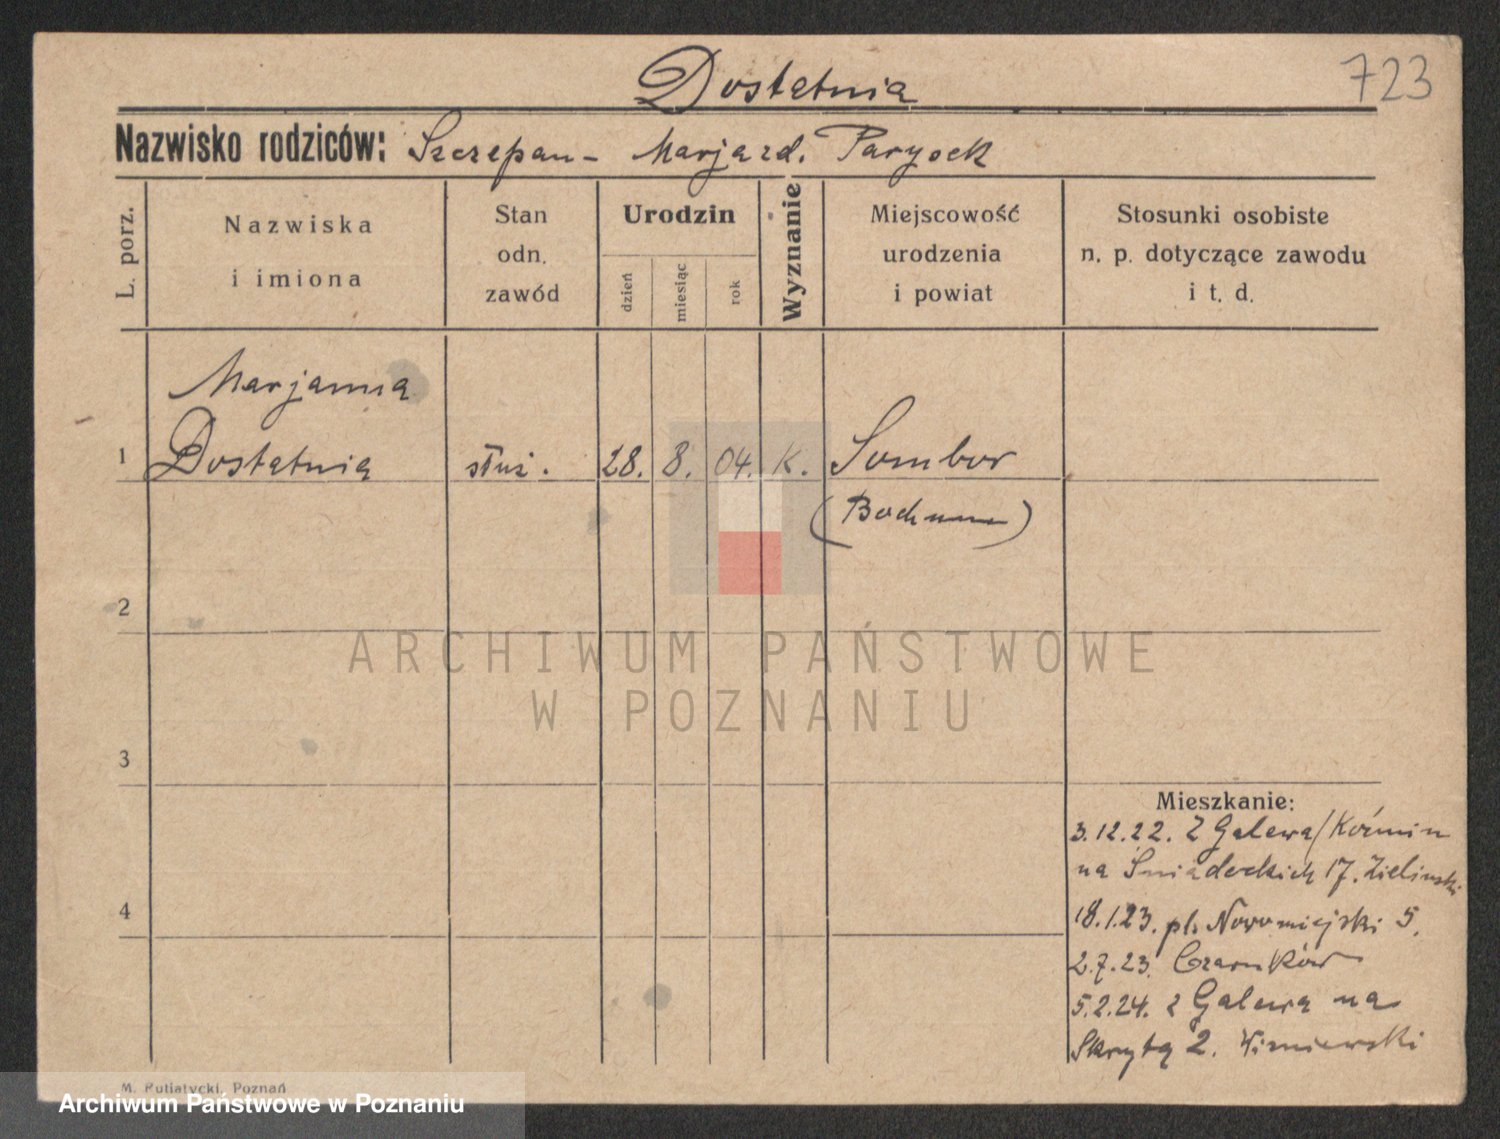 Dostatnia
723
Nazwisko rodziców: Szczepan - Marja zd. Parysek
L. porz.
Nazwiska
i imiona
Stan
odn.
zawód
Urodzin
dzień
miesiąc
rok
Wyznanie
Miejscowość
urodzenia
i powiat
Stosunki osobiste
n. p. dotyczące zawodu
i t. d.
Marjanna
1 Dostatnia służ. 28. 8. 04. K. Sombor
(Bochum)
2
ARCHIWUM PAŃSTWOWE
W POZNANIU
3
Mieszkanie:
3.12.22. Z Galewa/Koźmin
na Śniadeckich 17. Zielinski
4
18.1.23. pl. Nowomiejski 5.
2.7.23. Czarnków
5.2.24. z Galewa na
Skrytą 2. Wisniewski
M. Putiatycki, Poznań
Archiwum Państwowe w Poznaniu